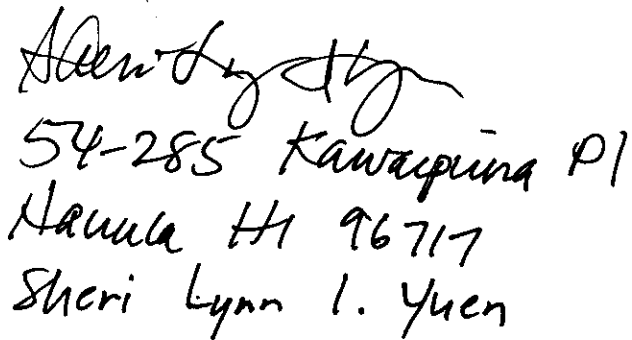 54-285 Kawaipuna Pl
Hauula HI 96717
Sheri Lynn I. Yuen